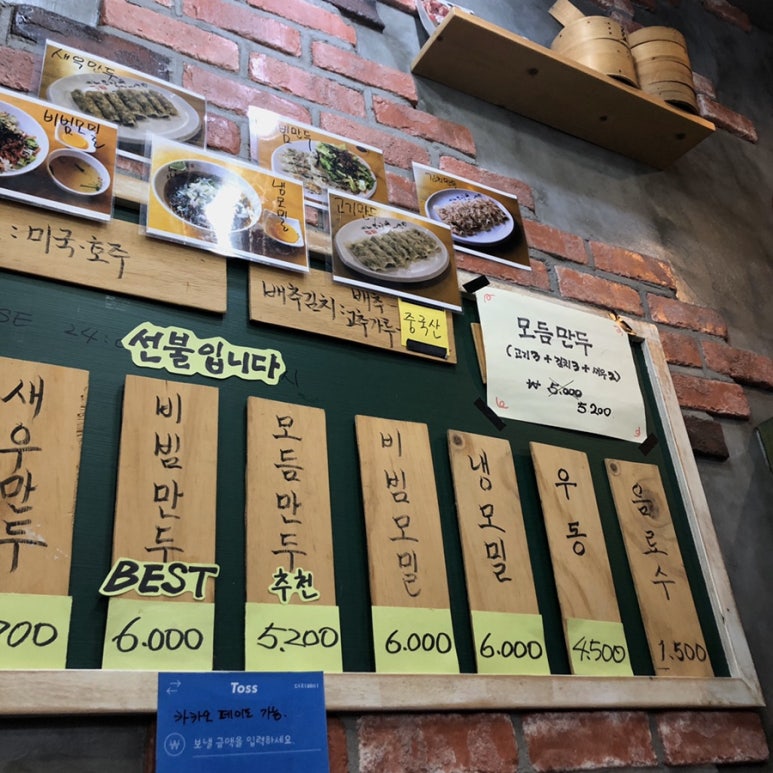 새우만두
비빔모밀
냉모밀
빔만두
고기만두
: 미국·호주
배추김치 : 배추
고추가루
중국산
SE 24:
선불입니다
모듬만두
(고기3 + 김치3 + 새우2)
₩ 5.000
5200
새우만두
비빔만두
BEST
6.000
모듬만두
추천
5.200
비빔모밀
6.000
냉모밀
6.000
우동
4.500
음료수
1.500
Toss
카카오 페이도 가능.
₩ 보낼 금액을 입력하세요.